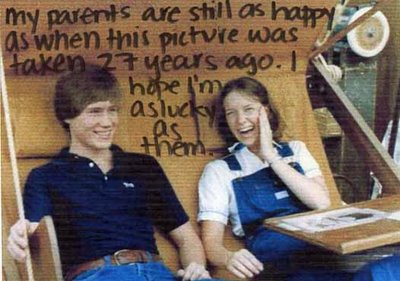 my parents are still as happy
as when this picture was
taken 27 years ago. I
hope I'm
as lucky
as
them.